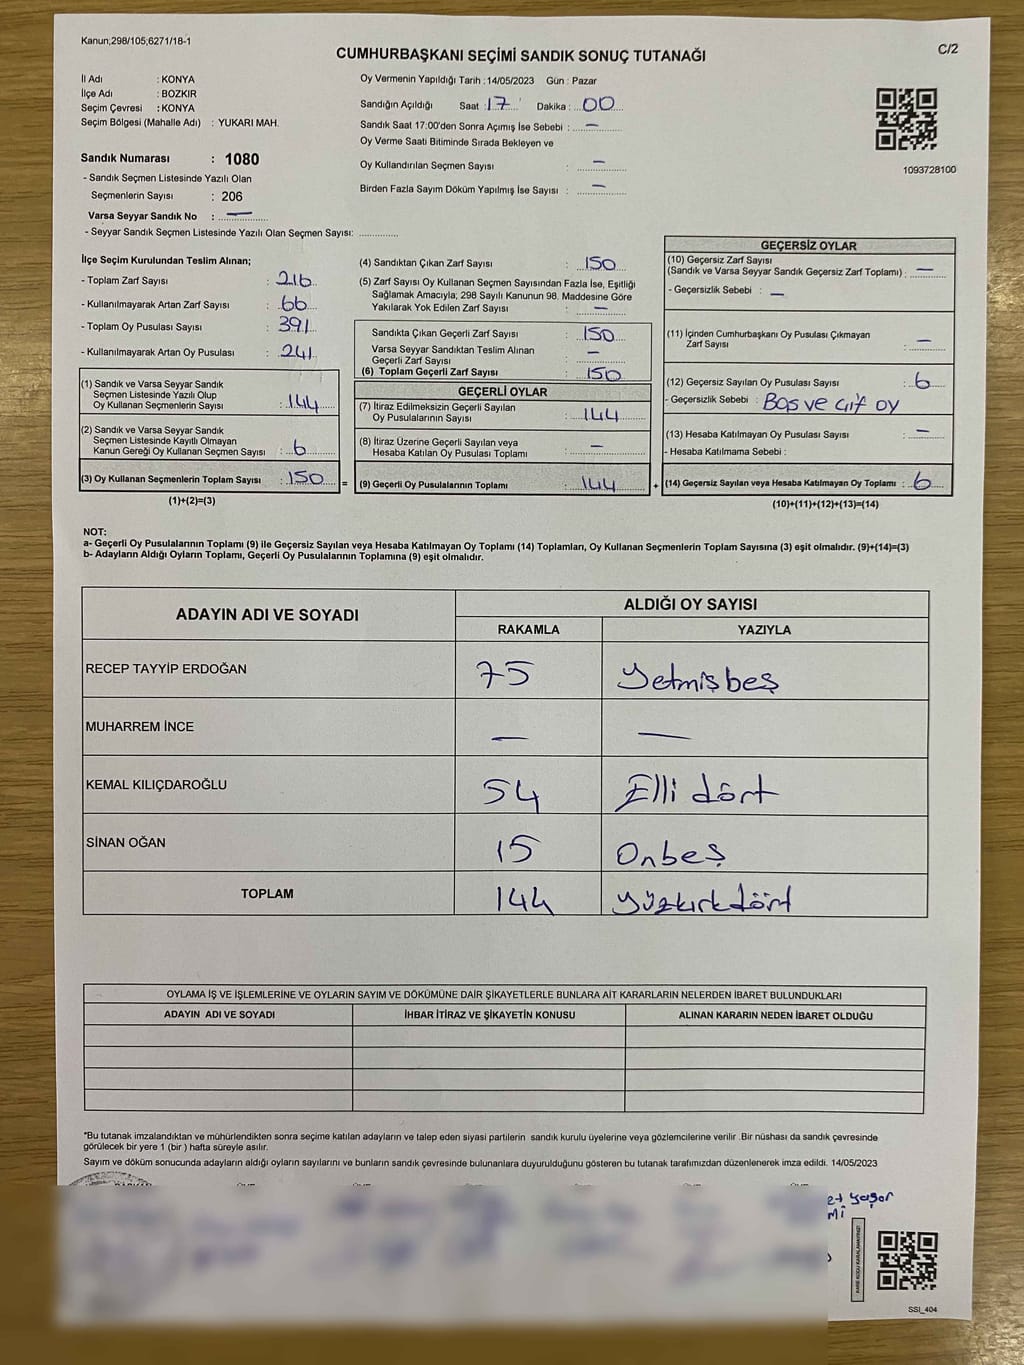 Kanun;298/105;6271/18-1
C/2
CUMHURBAŞKANI SEÇİMİ SANDIK SONUÇ TUTANAĞI
İl Adı : KONYA
İlçe Adı : BOZKIR
Seçim Çevresi : KONYA
Seçim Bölgesi (Mahalle Adı) : YUKARI MAH.
Sandık Numarası : 1080
- Sandık Seçmen Listesinde Yazılı Olan
Seçmenlerin Sayısı : 206
Varsa Seyyar Sandık No : —
- Seyyar Sandık Seçmen Listesinde Yazılı Olan Seçmen Sayısı: ..............
Oy Vermenin Yapıldığı Tarih : 14/05/2023 Gün : Pazar
Sandığın Açıldığı Saat : 17 Dakika : 00
Sandık Saat 17:00'den Sonra Açımış İse Sebebi : —
Oy Verme Saati Bitiminde Sırada Bekleyen ve
Oy Kullandırılan Seçmen Sayısı : —
Birden Fazla Sayım Döküm Yapılmış İse Sayısı : —
1093728100
İlçe Seçim Kurulundan Teslim Alınan;
- Toplam Zarf Sayısı : 216
- Kullanılmayarak Artan Zarf Sayısı : 66
- Toplam Oy Pusulası Sayısı : 391
- Kullanılmayarak Artan Oy Pusulası : 241
(1) Sandık ve Varsa Seyyar Sandık
Seçmen Listesinde Yazılı Olup
Oy Kullanan Seçmenlerin Sayısı : 144
(2) Sandık ve Varsa Seyyar Sandık
Seçmen Listesinde Kayıtlı Olmayan
Kanun Gereği Oy Kullanan Seçmen Sayısı : 6
(3) Oy Kullanan Seçmenlerin Toplam Sayısı : 150
(1)+(2)=(3)
(4) Sandıktan Çıkan Zarf Sayısı : 150
(5) Zarf Sayısı Oy Kullanan Seçmen Sayısından Fazla İse, Eşitliği
Sağlamak Amacıyla; 298 Sayılı Kanunun 98. Maddesine Göre
Yakılarak Yok Edilen Zarf Sayısı : —
Sandıkta Çıkan Geçerli Zarf Sayısı : 150
Varsa Seyyar Sandıktan Teslim Alınan
Geçerli Zarf Sayısı : —
(6) Toplam Geçerli Zarf Sayısı : 150
GEÇERLİ OYLAR
(7) İtiraz Edilmeksizin Geçerli Sayılan
Oy Pusulalarının Sayısı : 144
(8) İtiraz Üzerine Geçerli Sayılan veya
Hesaba Katılan Oy Pusulası Toplamı : —
= (9) Geçerli Oy Pusulalarının Toplamı : 144 +
GEÇERSİZ OYLAR
(10) Geçersiz Zarf Sayısı
(Sandık ve Varsa Seyyar Sandık Geçersiz Zarf Toplamı) : —
- Geçersizlik Sebebi : —
(11) İçinden Cumhurbaşkanı Oy Pusulası Çıkmayan
Zarf Sayısı : —
(12) Geçersiz Sayılan Oy Pusulası Sayısı : 6
- Geçersizlik Sebebi : Boş ve çift oy
(13) Hesaba Katılmayan Oy Pusulası Sayısı : —
- Hesaba Katılmama Sebebi :
(14) Geçersiz Sayılan veya Hesaba Katılmayan Oy Toplamı : 6
(10)+(11)+(12)+(13)=(14)
NOT:
a- Geçerli Oy Pusulalarının Toplamı (9) ile Geçersiz Sayılan veya Hesaba Katılmayan Oy Toplamı (14) Toplamları, Oy Kullanan Seçmenlerin Toplam Sayısına (3) eşit olmalıdır. (9)+(14)=(3)
b- Adayların Aldığı Oyların Toplamı, Geçerli Oy Pusulalarının Toplamına (9) eşit olmalıdır.
ADAYIN ADI VE SOYADI
ALDIĞI OY SAYISI
RAKAMLA YAZIYLA
RECEP TAYYİP ERDOĞAN 75 Yetmişbeş
MUHARREM İNCE — —
KEMAL KILIÇDAROĞLU 54 Elli dört
SİNAN OĞAN 15 Onbeş
TOPLAM 144 Yüzkırkdört
OYLAMA İŞ VE İŞLEMLERİNE VE OYLARIN SAYIM VE DÖKÜMÜNE DAİR ŞİKAYETLERLE BUNLARA AİT KARARLARIN NELERDEN İBARET BULUNDUKLARI
ADAYIN ADI VE SOYADI İHBAR İTİRAZ VE ŞİKAYETİN KONUSU ALINAN KARARIN NEDEN İBARET OLDUĞU
*Bu tutanak imzalandıktan ve mühürlendikten sonra seçime katılan adayların ve talep eden siyasi partilerin sandık kurulu üyelerine veya gözlemcilerine verilir .Bir nüshası da sandık çevresinde
görülecek bir yere 1 (bir ) hafta süreyle asılır.
Sayım ve döküm sonucunda adayların aldığı oyların sayılarını ve bunların sandık çevresinde bulunanlara duyurulduğunu gösteren bu tutanak tarafımızdan düzenlenerek imza edildi. 14/05/2023
Yaşar
KARE KODU KARALAMAYINIZ!
SSI_404